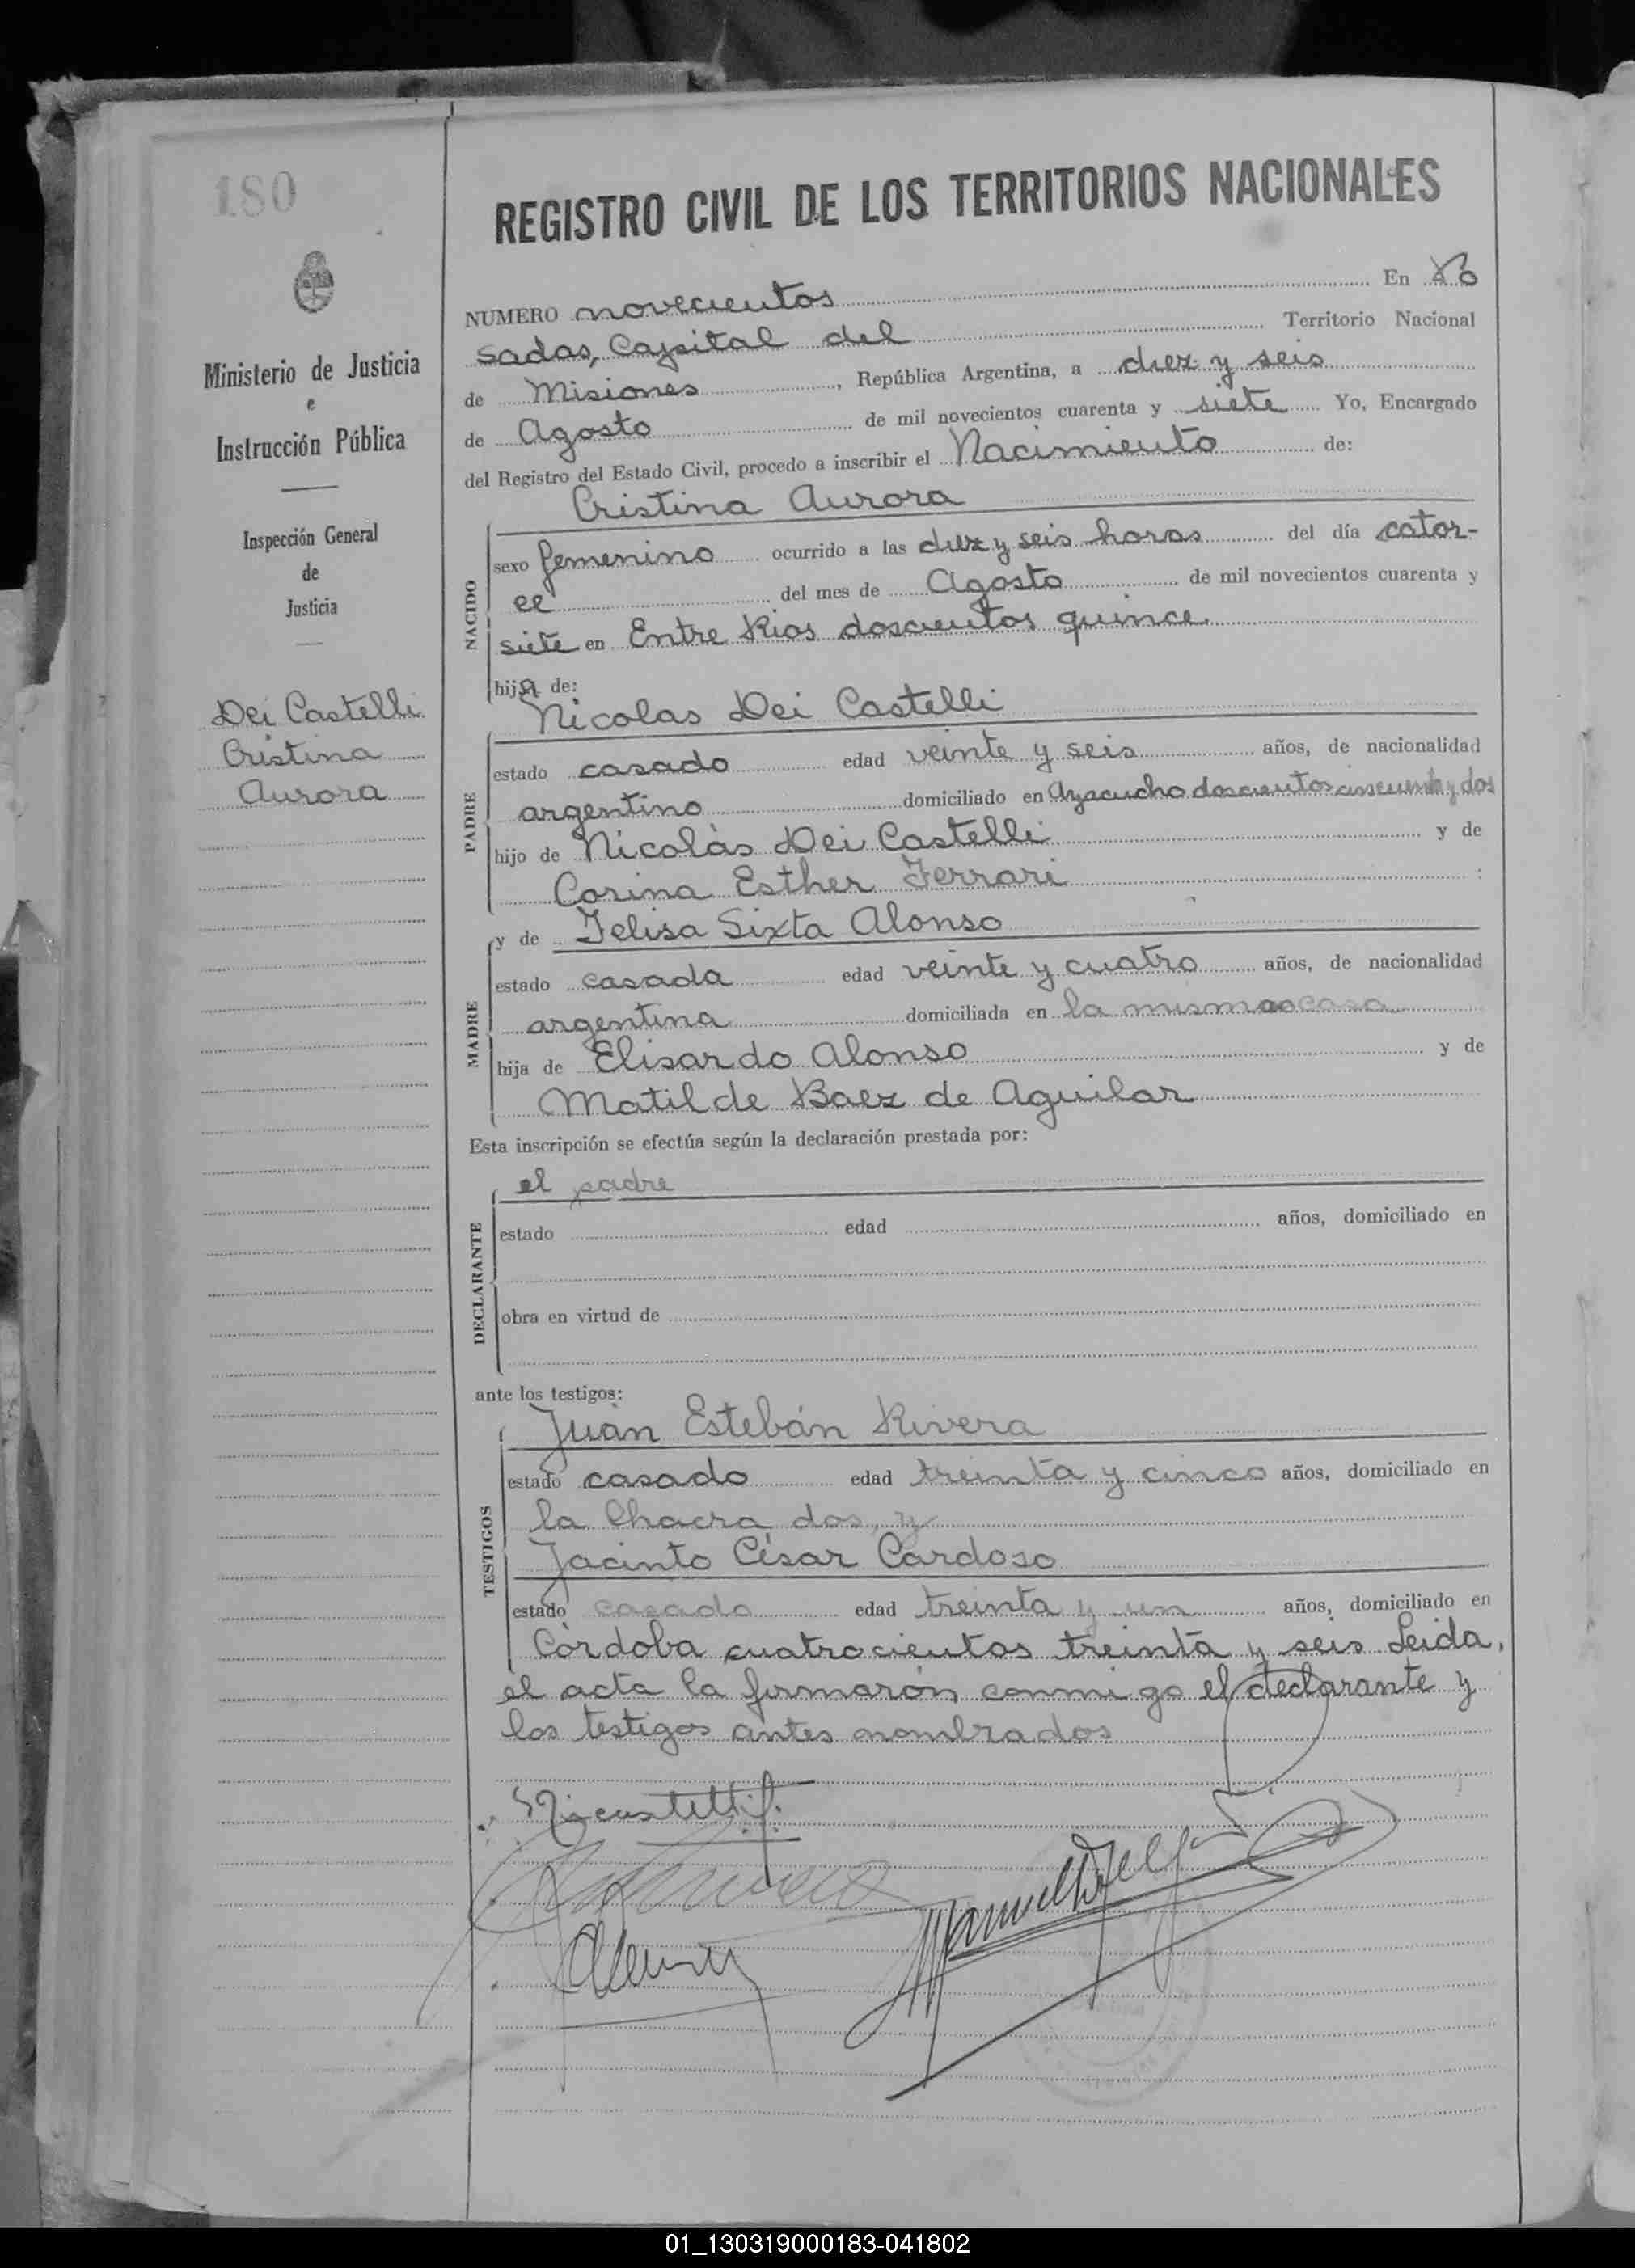 180
REGISTRO CIVIL DE LOS TERRITORIOS NACIONALES
Ministerio de Justicia
e
Instrucción Pública
Inspección General
de
Justicia
Dei Castelli
Cristina
Aurora
NUMERO novecientos En Po
sadas, Capital del Territorio Nacional
de Misiones, República Argentina, a diez y seis
de Agosto de mil novecientos cuarenta y siete Yo, Encargado
del Registro del Estado Civil, procedo a inscribir el Nacimiento de:
Cristina Aurora
NACIDO
sexo femenino ocurrido a las diez y seis horas del día cator-
ce del mes de Agosto de mil novecientos cuarenta y
siete en Entre Rios doscientos quince
hija de:
Nicolas Dei Castelli
PADRE
estado casado edad veinte y seis años, de nacionalidad
argentino domiciliado en Ayacucho doscientos cincuenta y dos
hijo de Nicolàs Dei Castelli y de
Corina Esther Ferrari :
y de Felisa Sixta Alonso
MADRE
estado casada edad veinte y cuatro años, de nacionalidad
argentina domiciliada en la misma casa
hija de Elisardo Alonso y de
Matilde Baez de Aguilar
Esta inscripción se efectúa según la declaración prestada por:
el padre
DECLARANTE
estado edad años, domiciliado en
obra en virtud de
ante los testigos:
Juàn Estebán Rivera
TESTIGOS
estado casado edad treinta y cinco años, domiciliado en
la Chacra dos, y
Jacinto César Cardoso
estado casado edad treinta y un años, domiciliado en
Còrdoba cuatrocientos treinta y seis Leida,
el acta la firmaròn conmigo el declarante y
los testigos antes nombrados
01_130319000183-041802